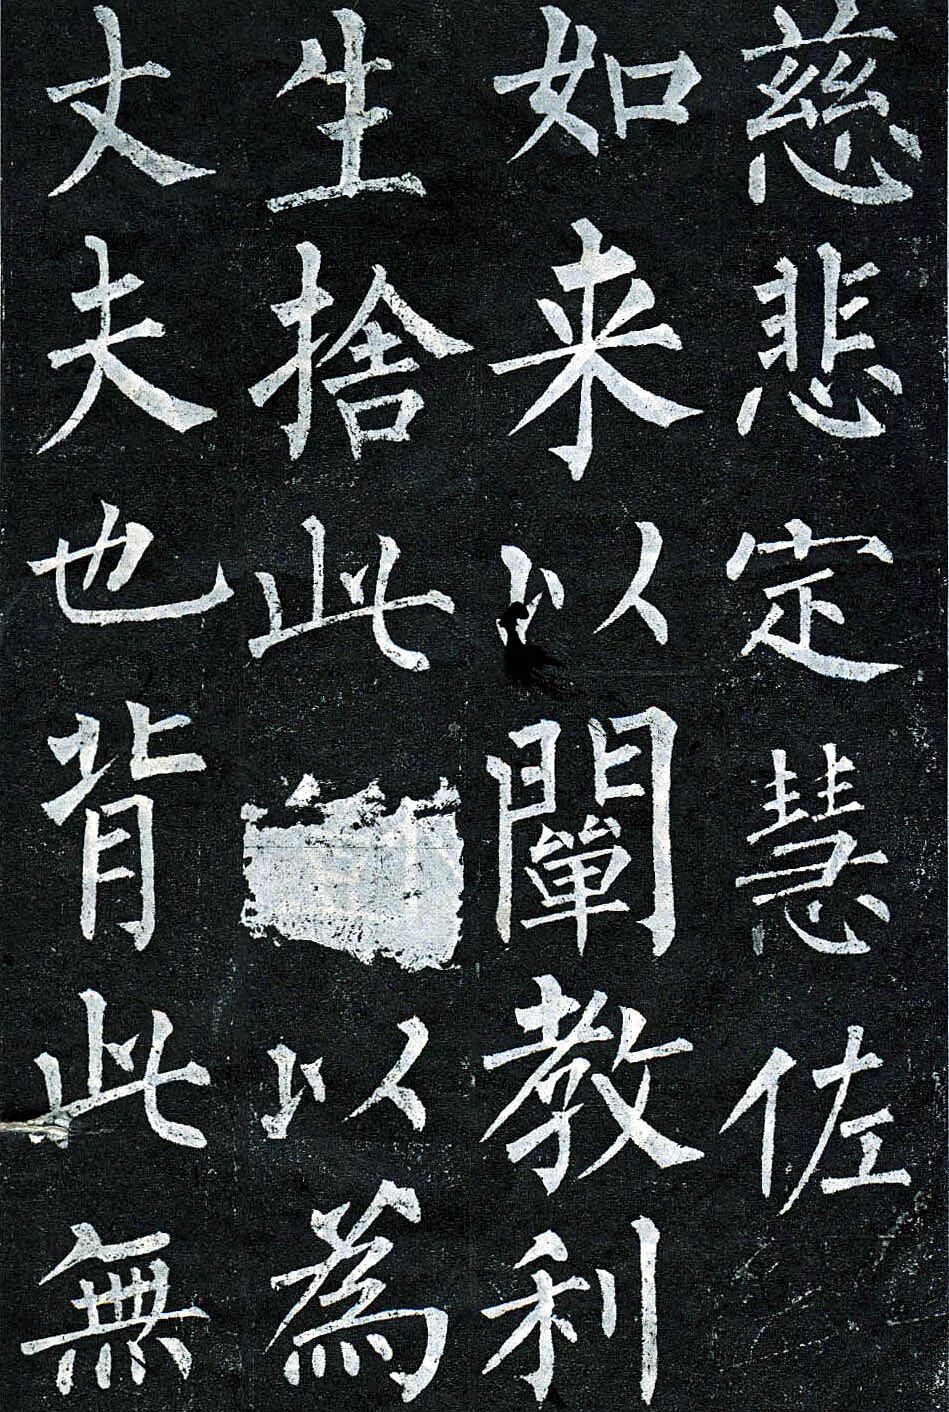 慈悲定慧佐
如来以闡教利
生捨此以為
丈夫也背此無